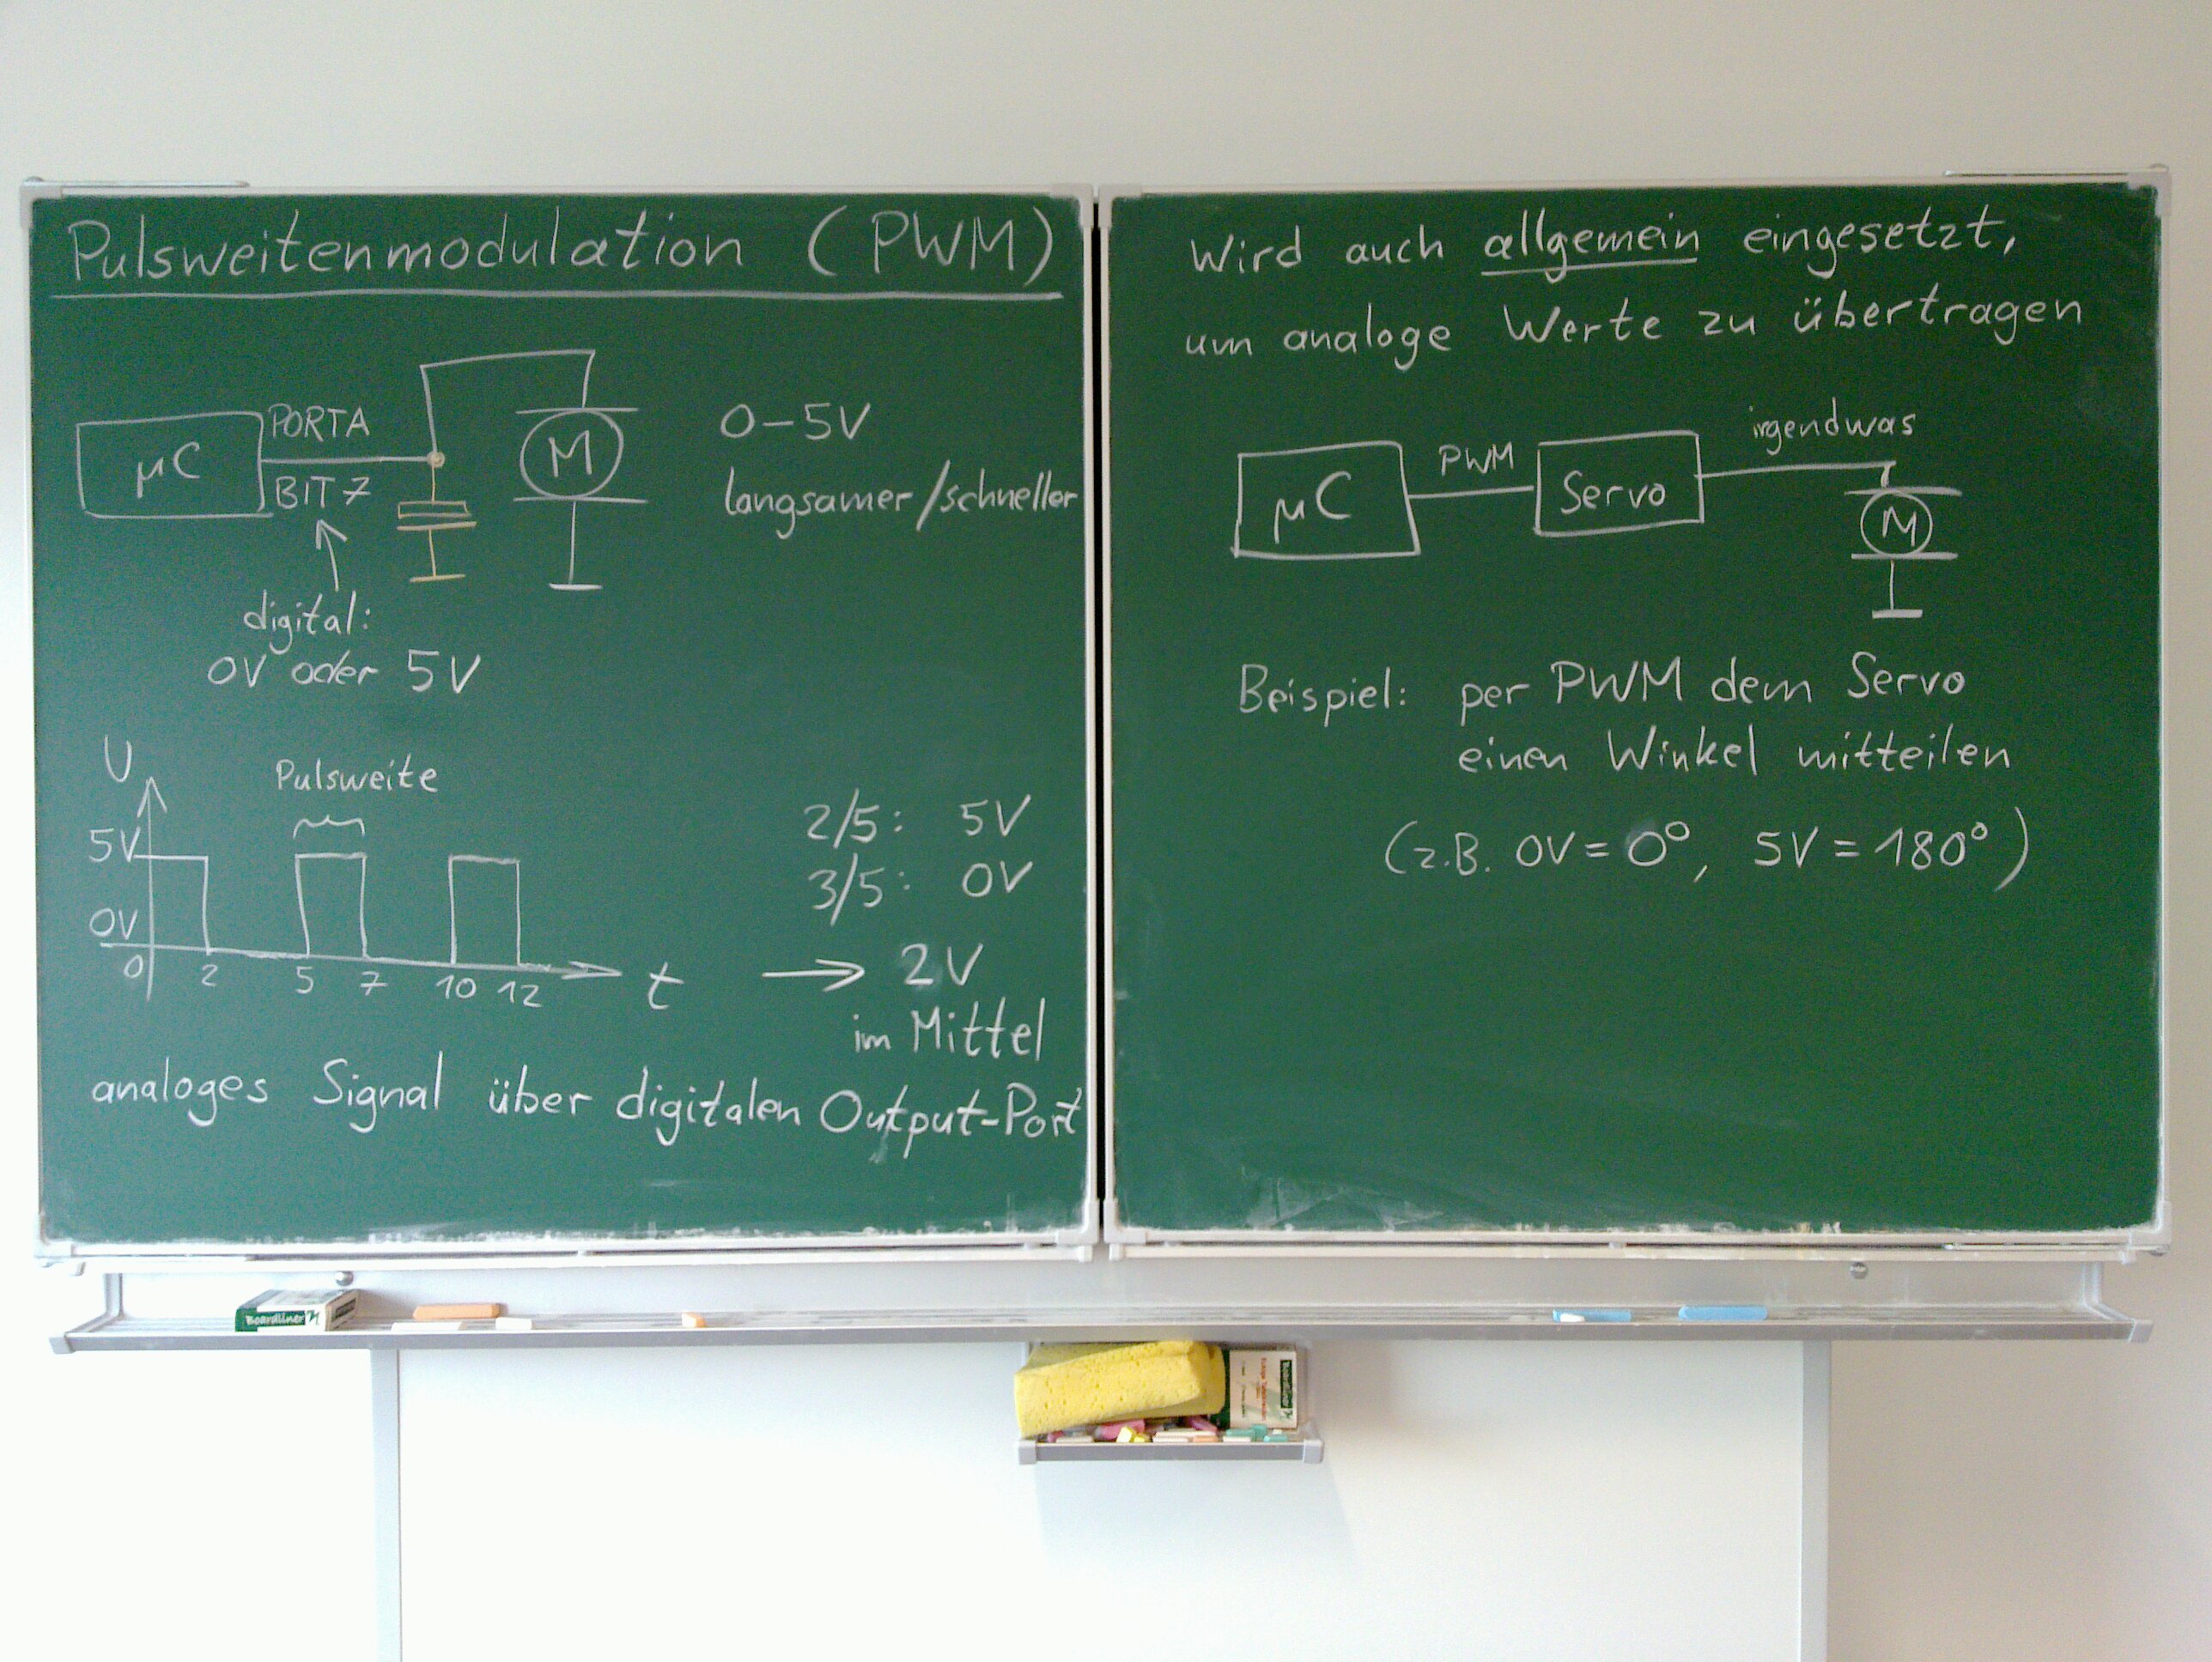 Pulsweitenmodulation (PWM)
µC
PORTA
BIT 7
M
0-5V
langsamer/schneller
digital:
0V oder 5V
U
Pulsweite
5V
0V
0 2 5 7 10 12 t
2/5: 5V
3/5: 0V
→ 2V
im Mittel
analoges Signal über digitalen Output-Port
Wird auch allgemein eingesetzt,
um analoge Werte zu übertragen
µC
PWM
Servo
irgendwas
M
Beispiel: per PWM dem Servo
einen Winkel mitteilen
(z.B. 0V = 0°, 5V = 180°)
Boardliner
Boardliner